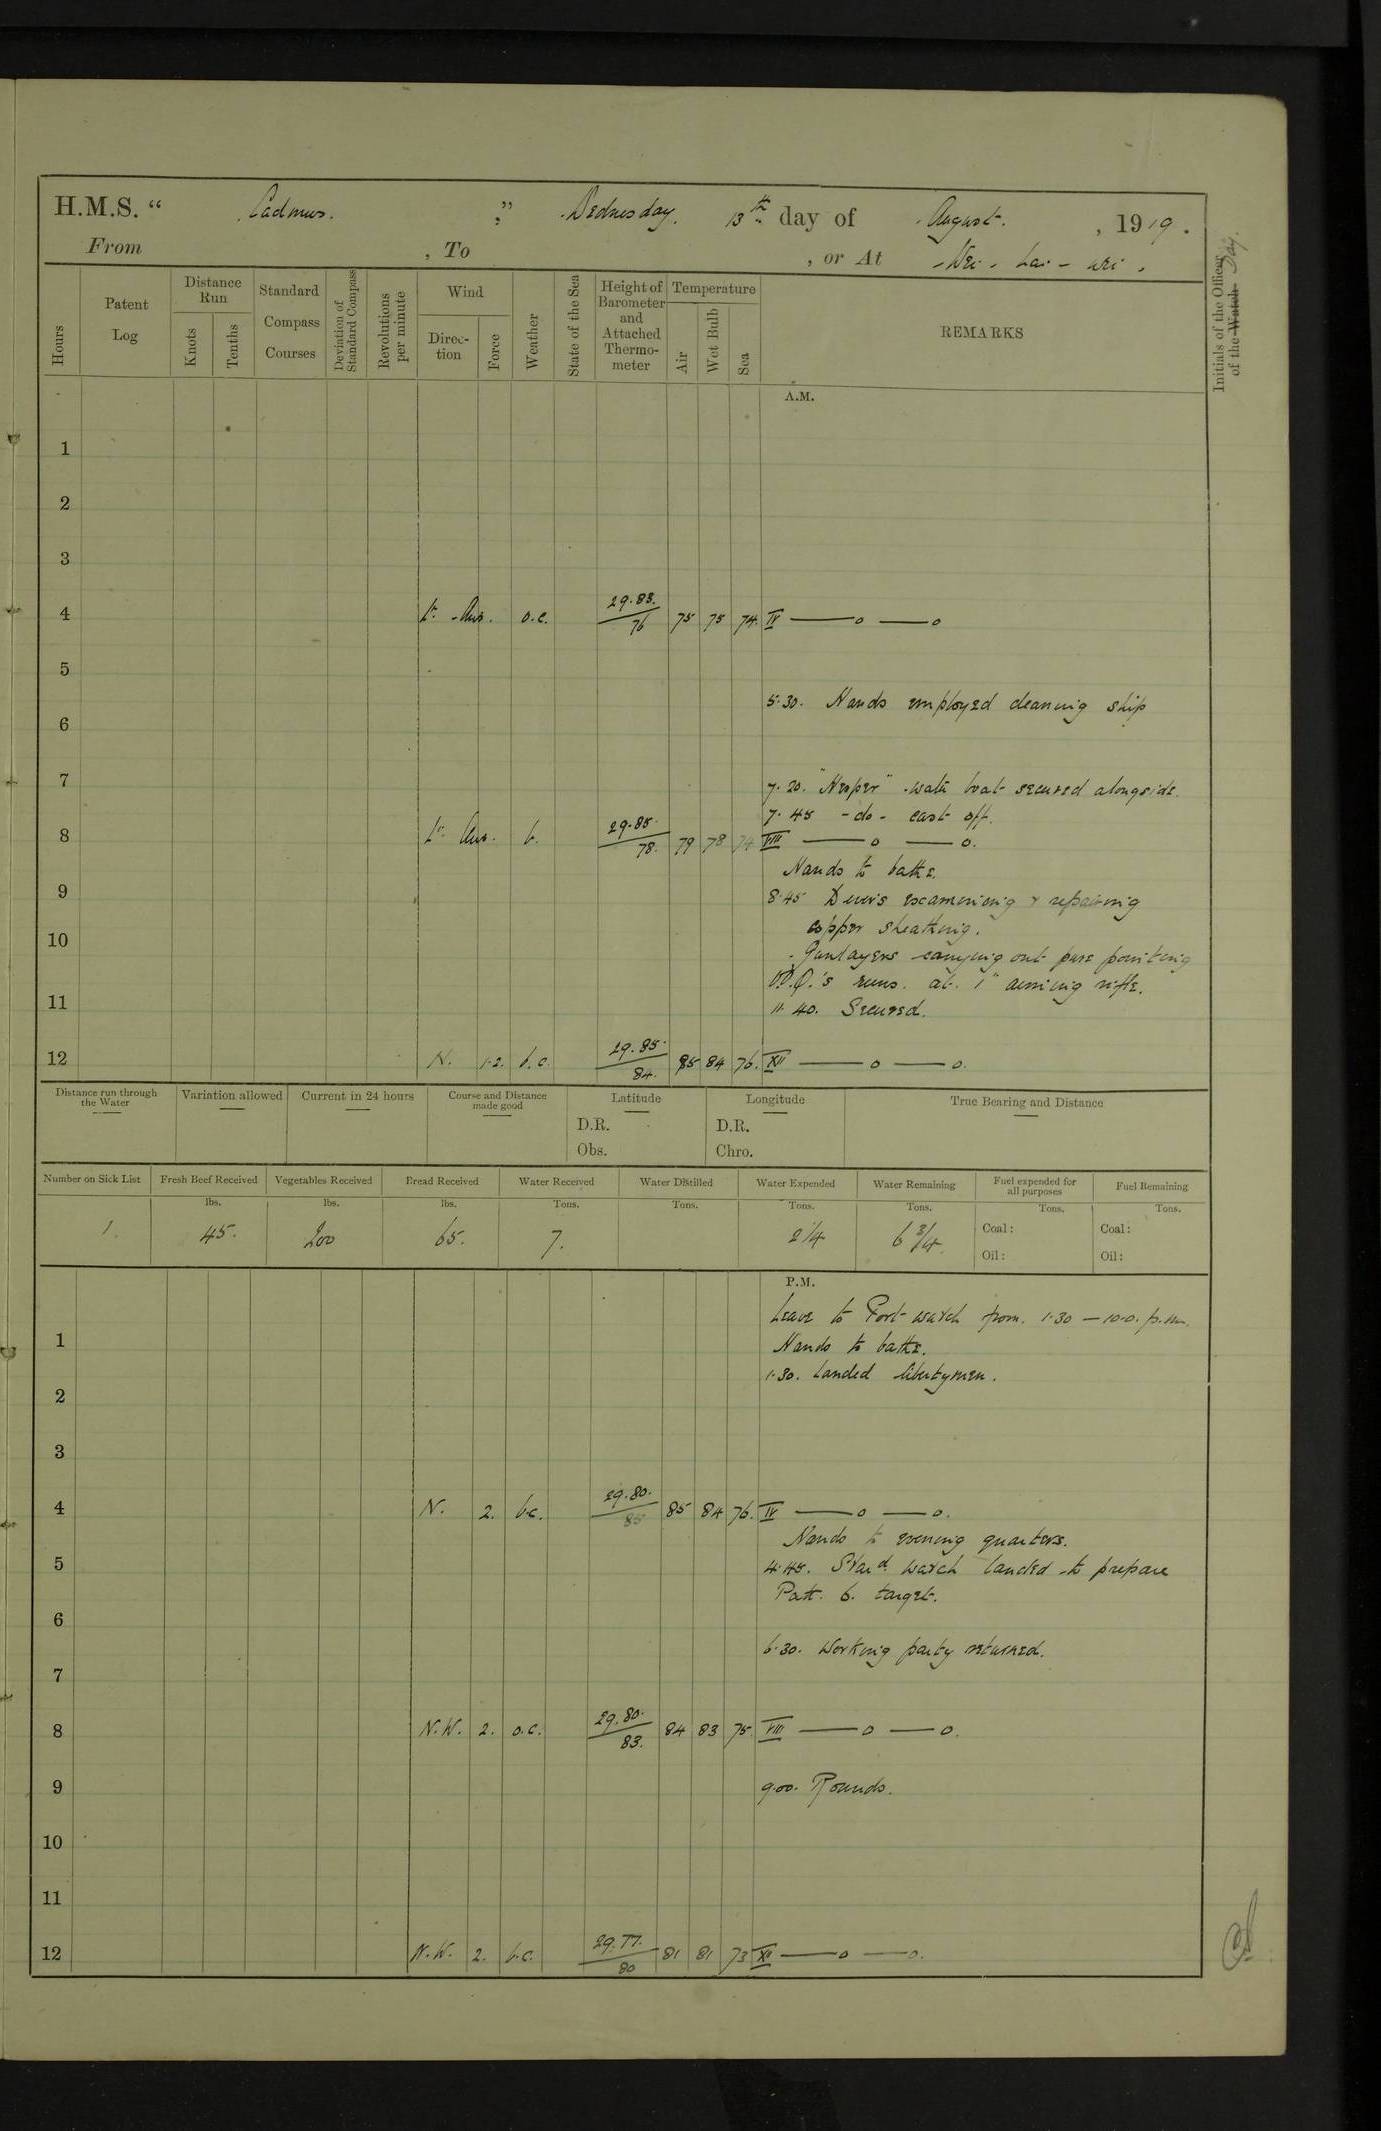 H.M.S. “ Cadmus. ,” Wednesday. 13th day of August. , 1919.
From , To , or At Wei - hai - wei .
Initials of the Officer of the Watch Day.
Hours Patent Log Distance Run Knots Tenths Standard Compass Courses Deviation of Standard Compass Revolutions per minute Wind Direc-tion Force Weather State of the Sea Height of Barometer and Attached Thermo-meter Temperature Air Wet Bulb Sea REMARKS
A.M.
1
2
3
4 Lt. Airs. o.c. 29.83. 76 75 75 74. IV —— o —— o
5
5.30. Hands employed cleaning ship
6
7
7.20. "Hesper" water boat secured alongside.
7.45 - do - cast off.
8 Lt. Airs. b. 29.85. 78. 79 78 74 VIII —— o —— o.
Hands to bathe.
9 8.45 Divers examining & repairing
copper sheathing.
10
Gunlayers carrying out pure pointing
V.P.Q.'s runs. at. 1" aiming rifle.
11 11.40. Secured.
12 N. 1-2. b.c. 29.85. 84. 85 84 76. XII —— o —— o.
Distance run through the Water Variation allowed Current in 24 hours Course and Distance made good Latitude Longitude True Bearing and Distance
D.R. D.R.
Obs. Chro.
Number on Sick List Fresh Beef Received Vegetables Received Bread Received Water Received Water Distilled Water Expended Water Remaining Fuel expended for all purposes Fuel Remaining
lbs. lbs. lbs. Tons. Tons. Tons. Tons. Tons. Tons.
1. 45. 200 65. 7. 2 1/4 6 3/4. Coal: Coal:
Oil: Oil:
P.M.
Leave to Port watch from. 1.30 — 10.0. p.m.
1 Hands to bathe.
1.30. Landed libertymen.
2
3
4 N. 2. b.c. 29.80. 85 85 84 76. IV —— o —— o.
Hands to evening quarters.
5 4.45. Starbd. watch landed to prepare
Patt. 6. target.
6
6.30. Working party returned.
7
8 N.W. 2. o.c. 29.80. 83. 84 83 75. VIII —— o —— o.
9 9.00. Rounds.
10
11
12 N.W. 2. b.c. 29.77. 80 81 81 73 XII —— o —— o.